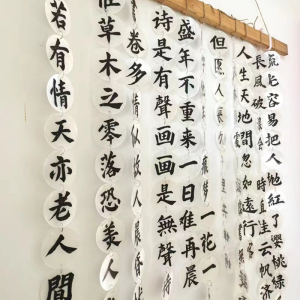 流光容易把人拋紅了櫻桃綠
長風破浪會時直挂云帆济
人生天地間忽如遠行
但愿人長
一花一
盛年不重來一日難再晨
詩是有聲畫畫是無聲詩
卷多情似故人晨昏
惟草木之零落恐美人
若有情天亦老人間